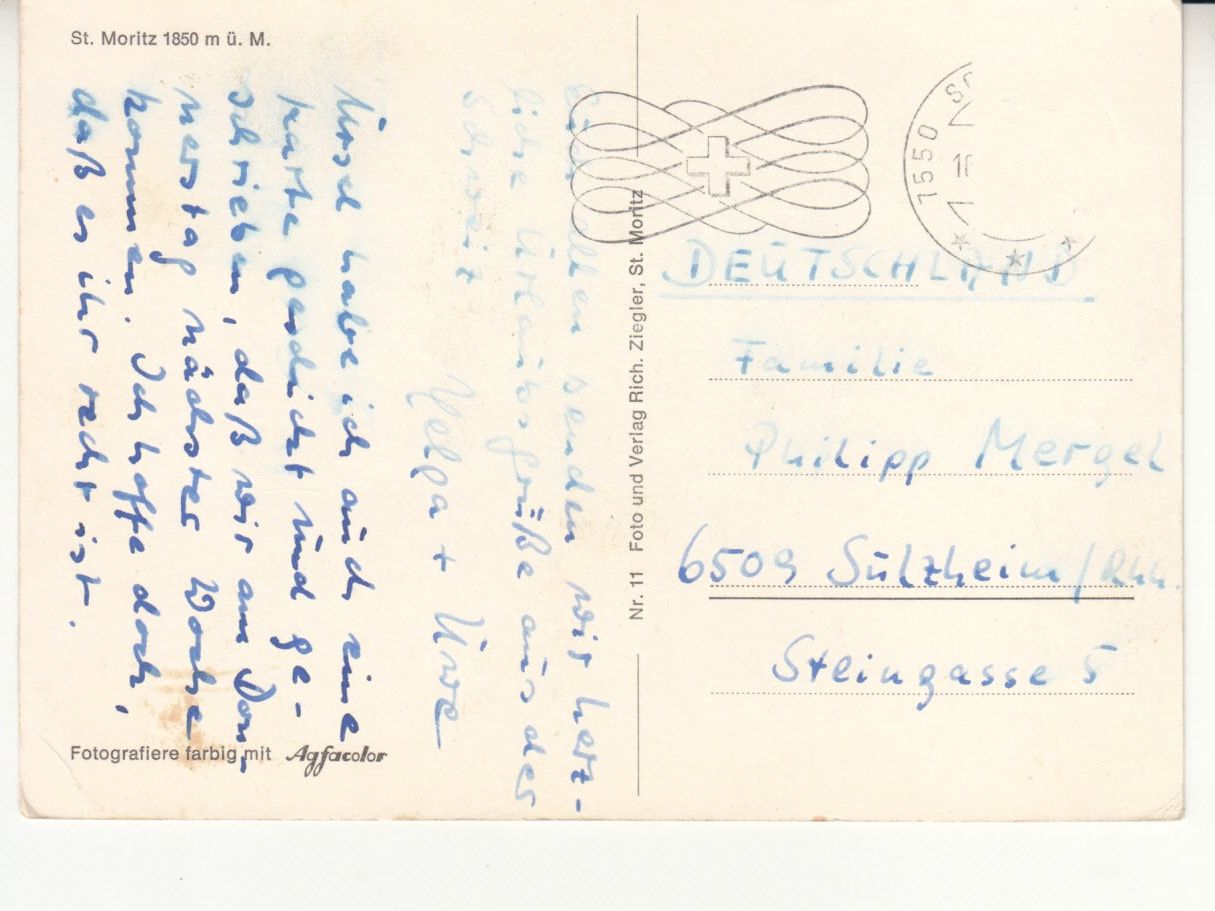 St. Moritz 1850 m ü. M.
Euch allen senden wir herz-
liche Urlaubsgrüße aus der
Schweiz
Helga + Uwe
Ursel habe ich auch eine
Karte geschickt und ge-
schrieben, daß wir am Don-
nerstag nächster Woche
kommen. Ich hoffe doch,
daß es ihr recht ist.
Fotografiere farbig mit Agfacolor
Nr. 11 Foto und Verlag Rich. Ziegler, St. Moritz
7550
DEUTSCHLAND
Familie
Philipp Mergel
6509 Sulzheim/Rhh.
Steingasse 5